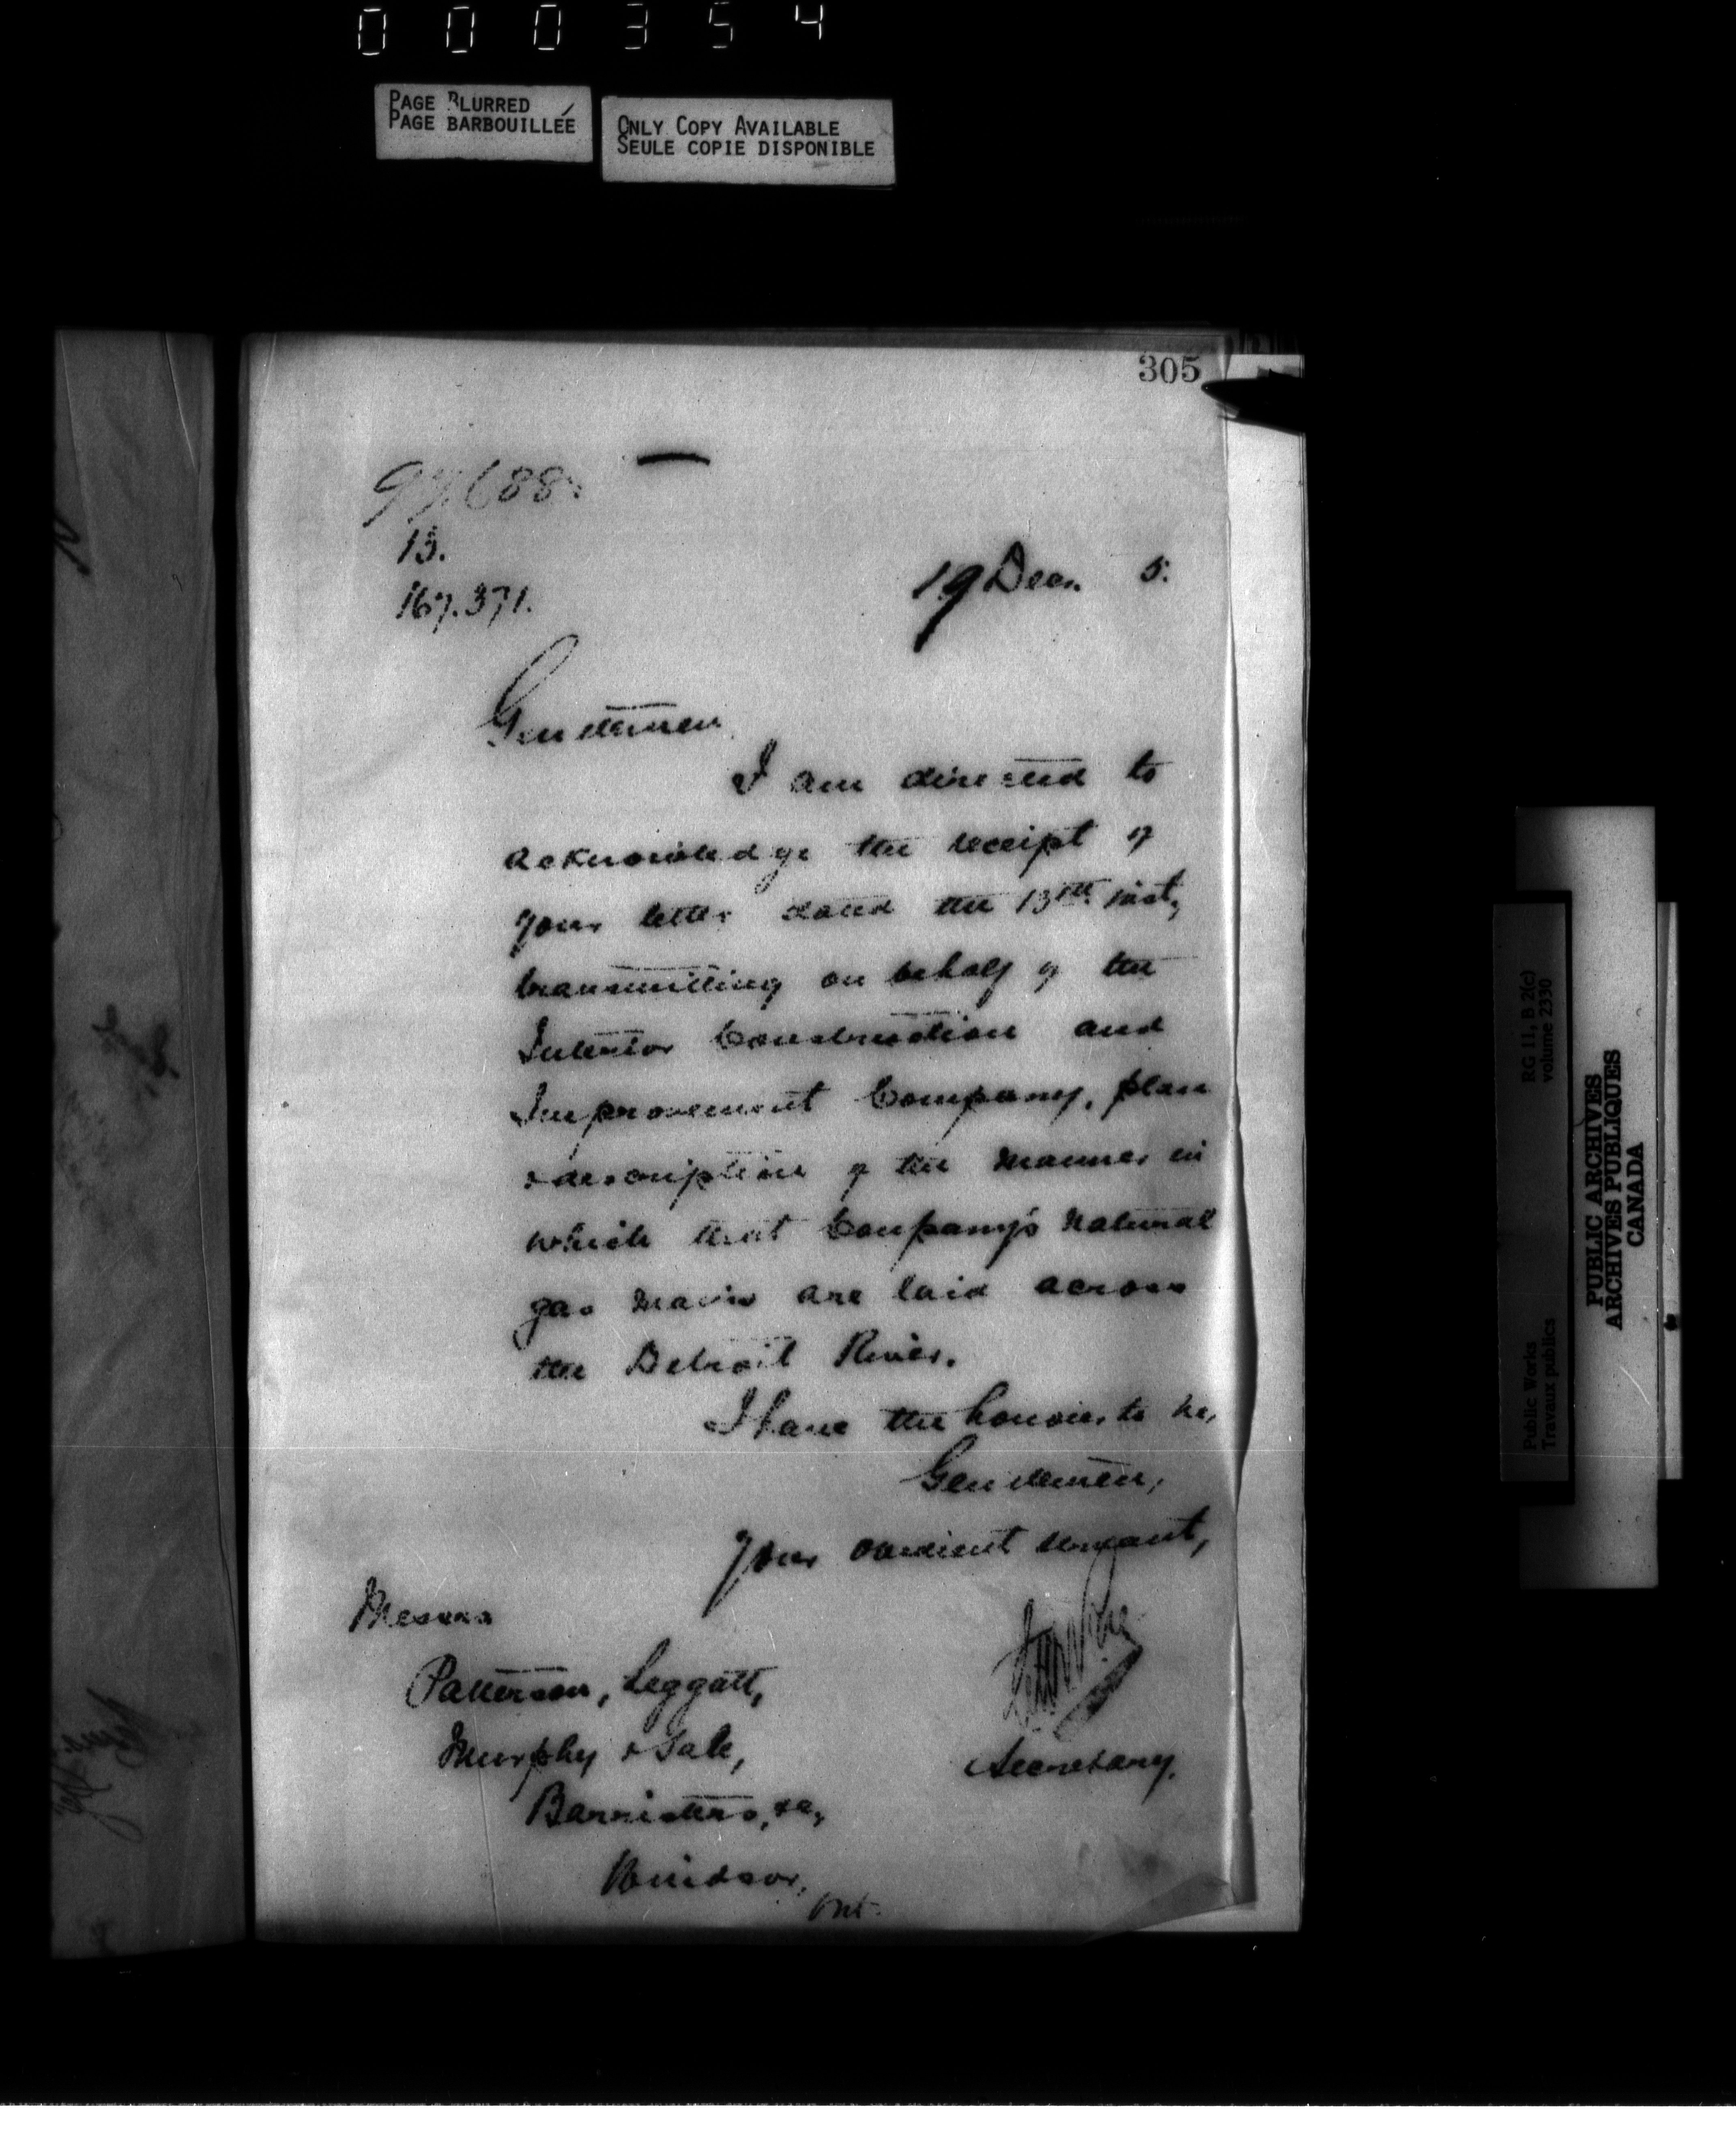 000354
PAGE BLURRED
PAGE BARBOUILLÉE
ONLY COPY AVAILABLE
SEULE COPIE DISPONIBLE
305
97.688.
13.
167.371.
19 Decr. 5.
Gentlemen,
I am directed to
acknowledge the receipt of
your letter dated the 13th inst,
transmitting on behalf of the
Interior Construction and
Improvement Company, plan
& description of the manner in
which that Company's natural
gas mains are laid across
the Detroit River.
I have the honour to be,
Gentlemen,
Your obedient servant,
Secretary.
Messrs
Patterson, Leggatt,
Murphy & Sale,
Barristers, &c,
Windsor,
Ont.
RG 11, B 2(c)
volume 2330
Public Works
Travaux publics
PUBLIC ARCHIVES
ARCHIVES PUBLIQUES
CANADA